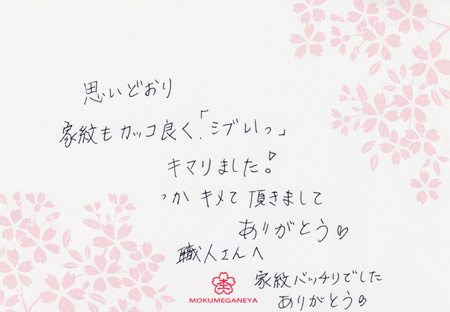 思いどおり
家紋もカッコ良く!「シブいっ」
キマりました!
っか キメて頂きまして
ありがとう♡
職人さんへ
家紋バッチリでした
ありがとう♡
MOKUMEGANEYA